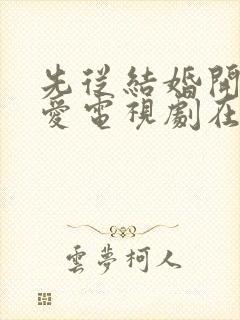 先從結婚開
愛電視劇在
雲夢柯人